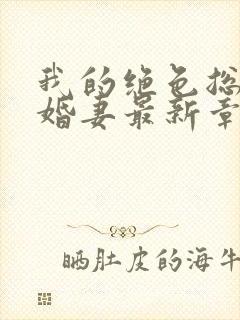 我的绝色总
婚妻最新章
晒肚皮的海牛